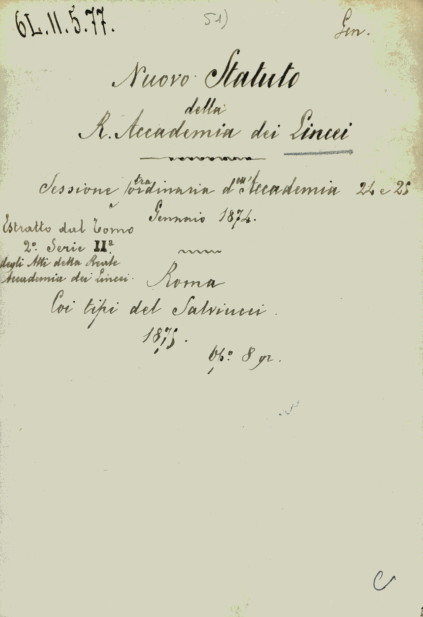 6L.11.5.77.
51)
Gen.
Nuovo Statuto
della
R. Accademia dei Lincei
Sessione straordinaria d' Accademia 24 e 25
Gennaio 1874.
Estratto dal Tomo
2º Serie IIª
degli Atti della Reale
Accademia dei Lincei.
Roma
Coi tipi del Salviucci.
1875.
8 gr.
C